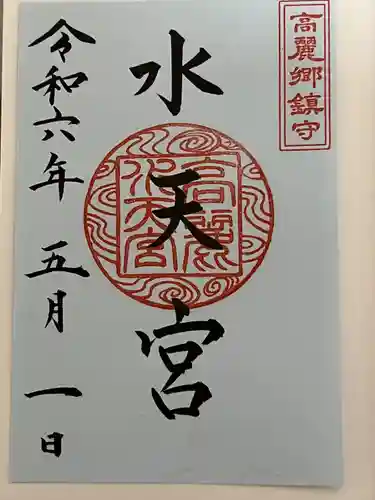 高麗郷鎮守
水天宮
高麗水天宮
令和六年 五月 一日